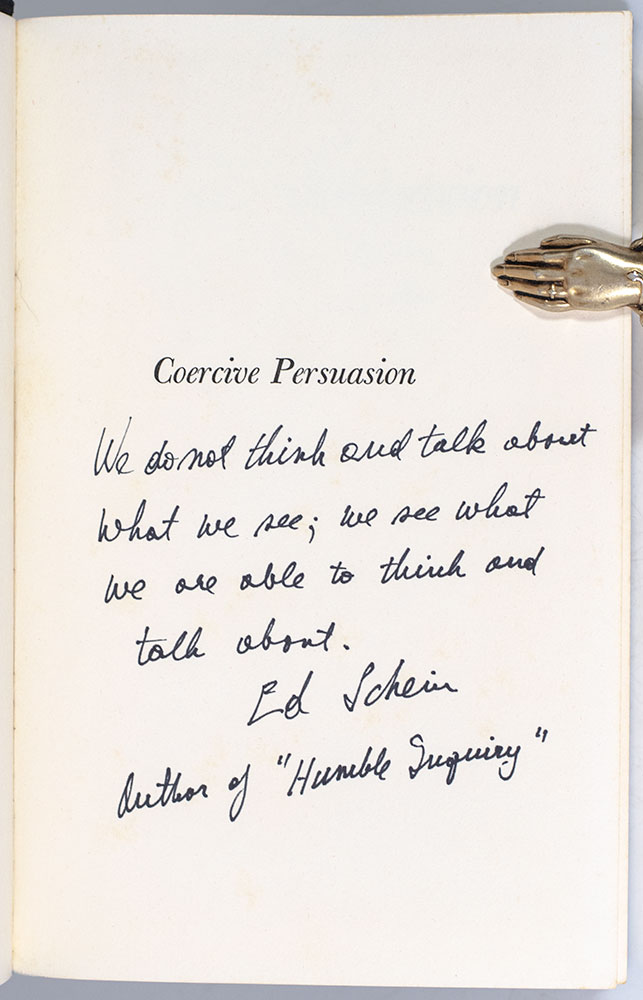 Coercive Persuasion
We do not think and talk about
what we see; we see what
we are able to think and
talk about.
Ed Schein
Author of "Humble Inquiry"